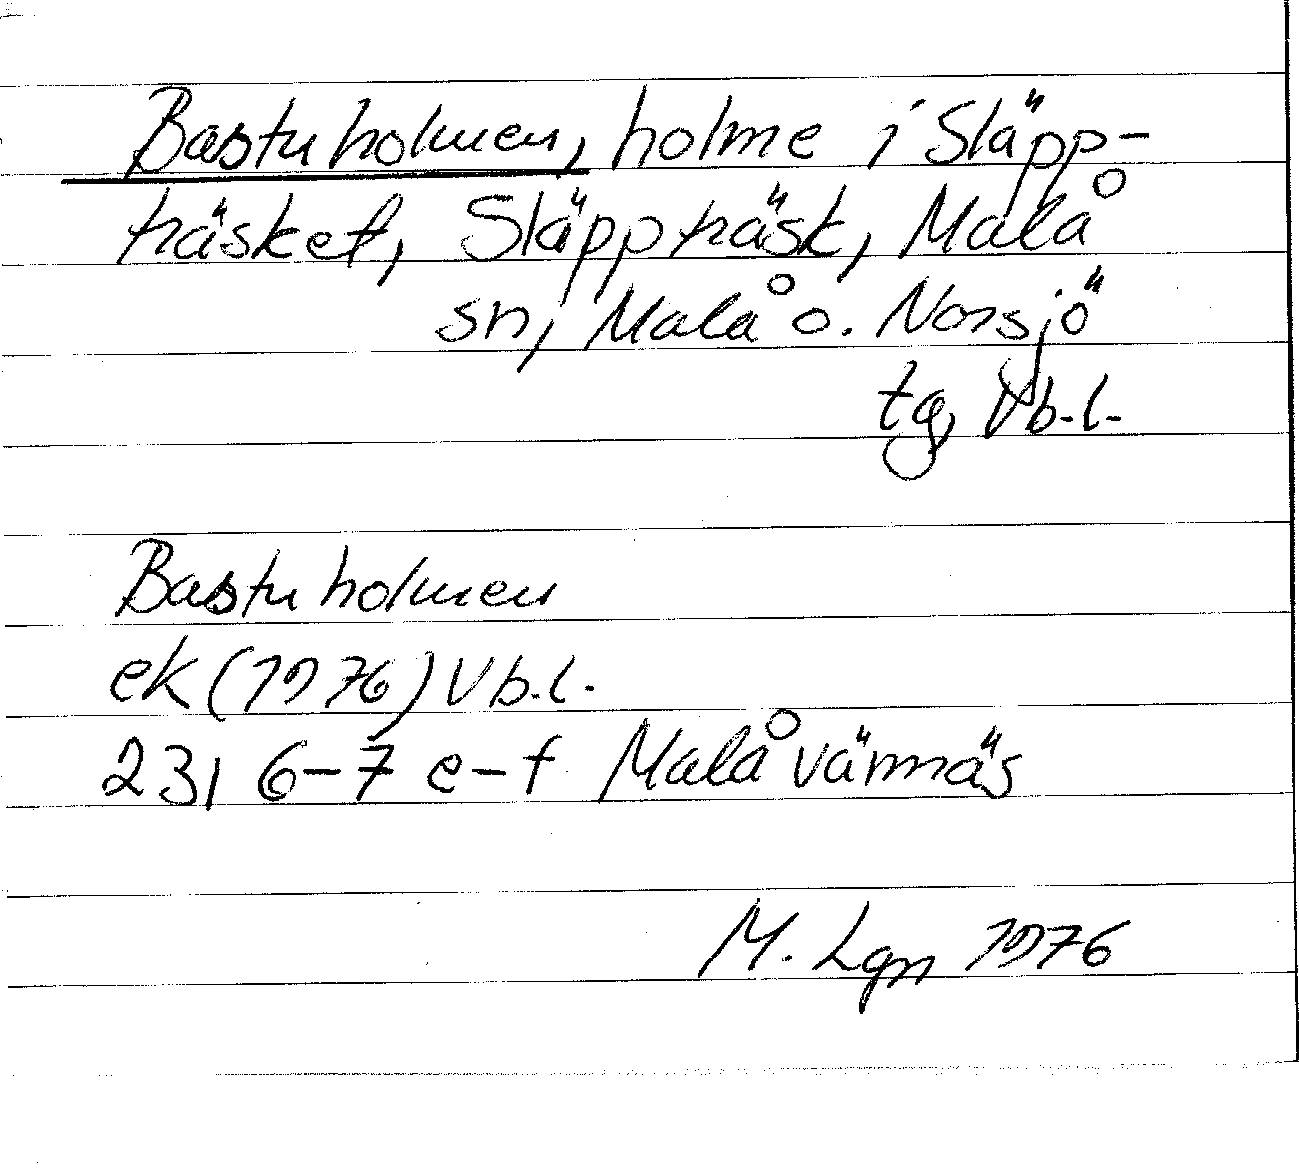 Bastuholmen, holme i Släpp-
träsket, Släppträsk, Malå
sn, Malå o. Norsjö
tg, Vb.l.
Bastuholmen
ek (1976) Vb.l.
23I 6-7 e-f Malåvännäs
M. Lgn 1976